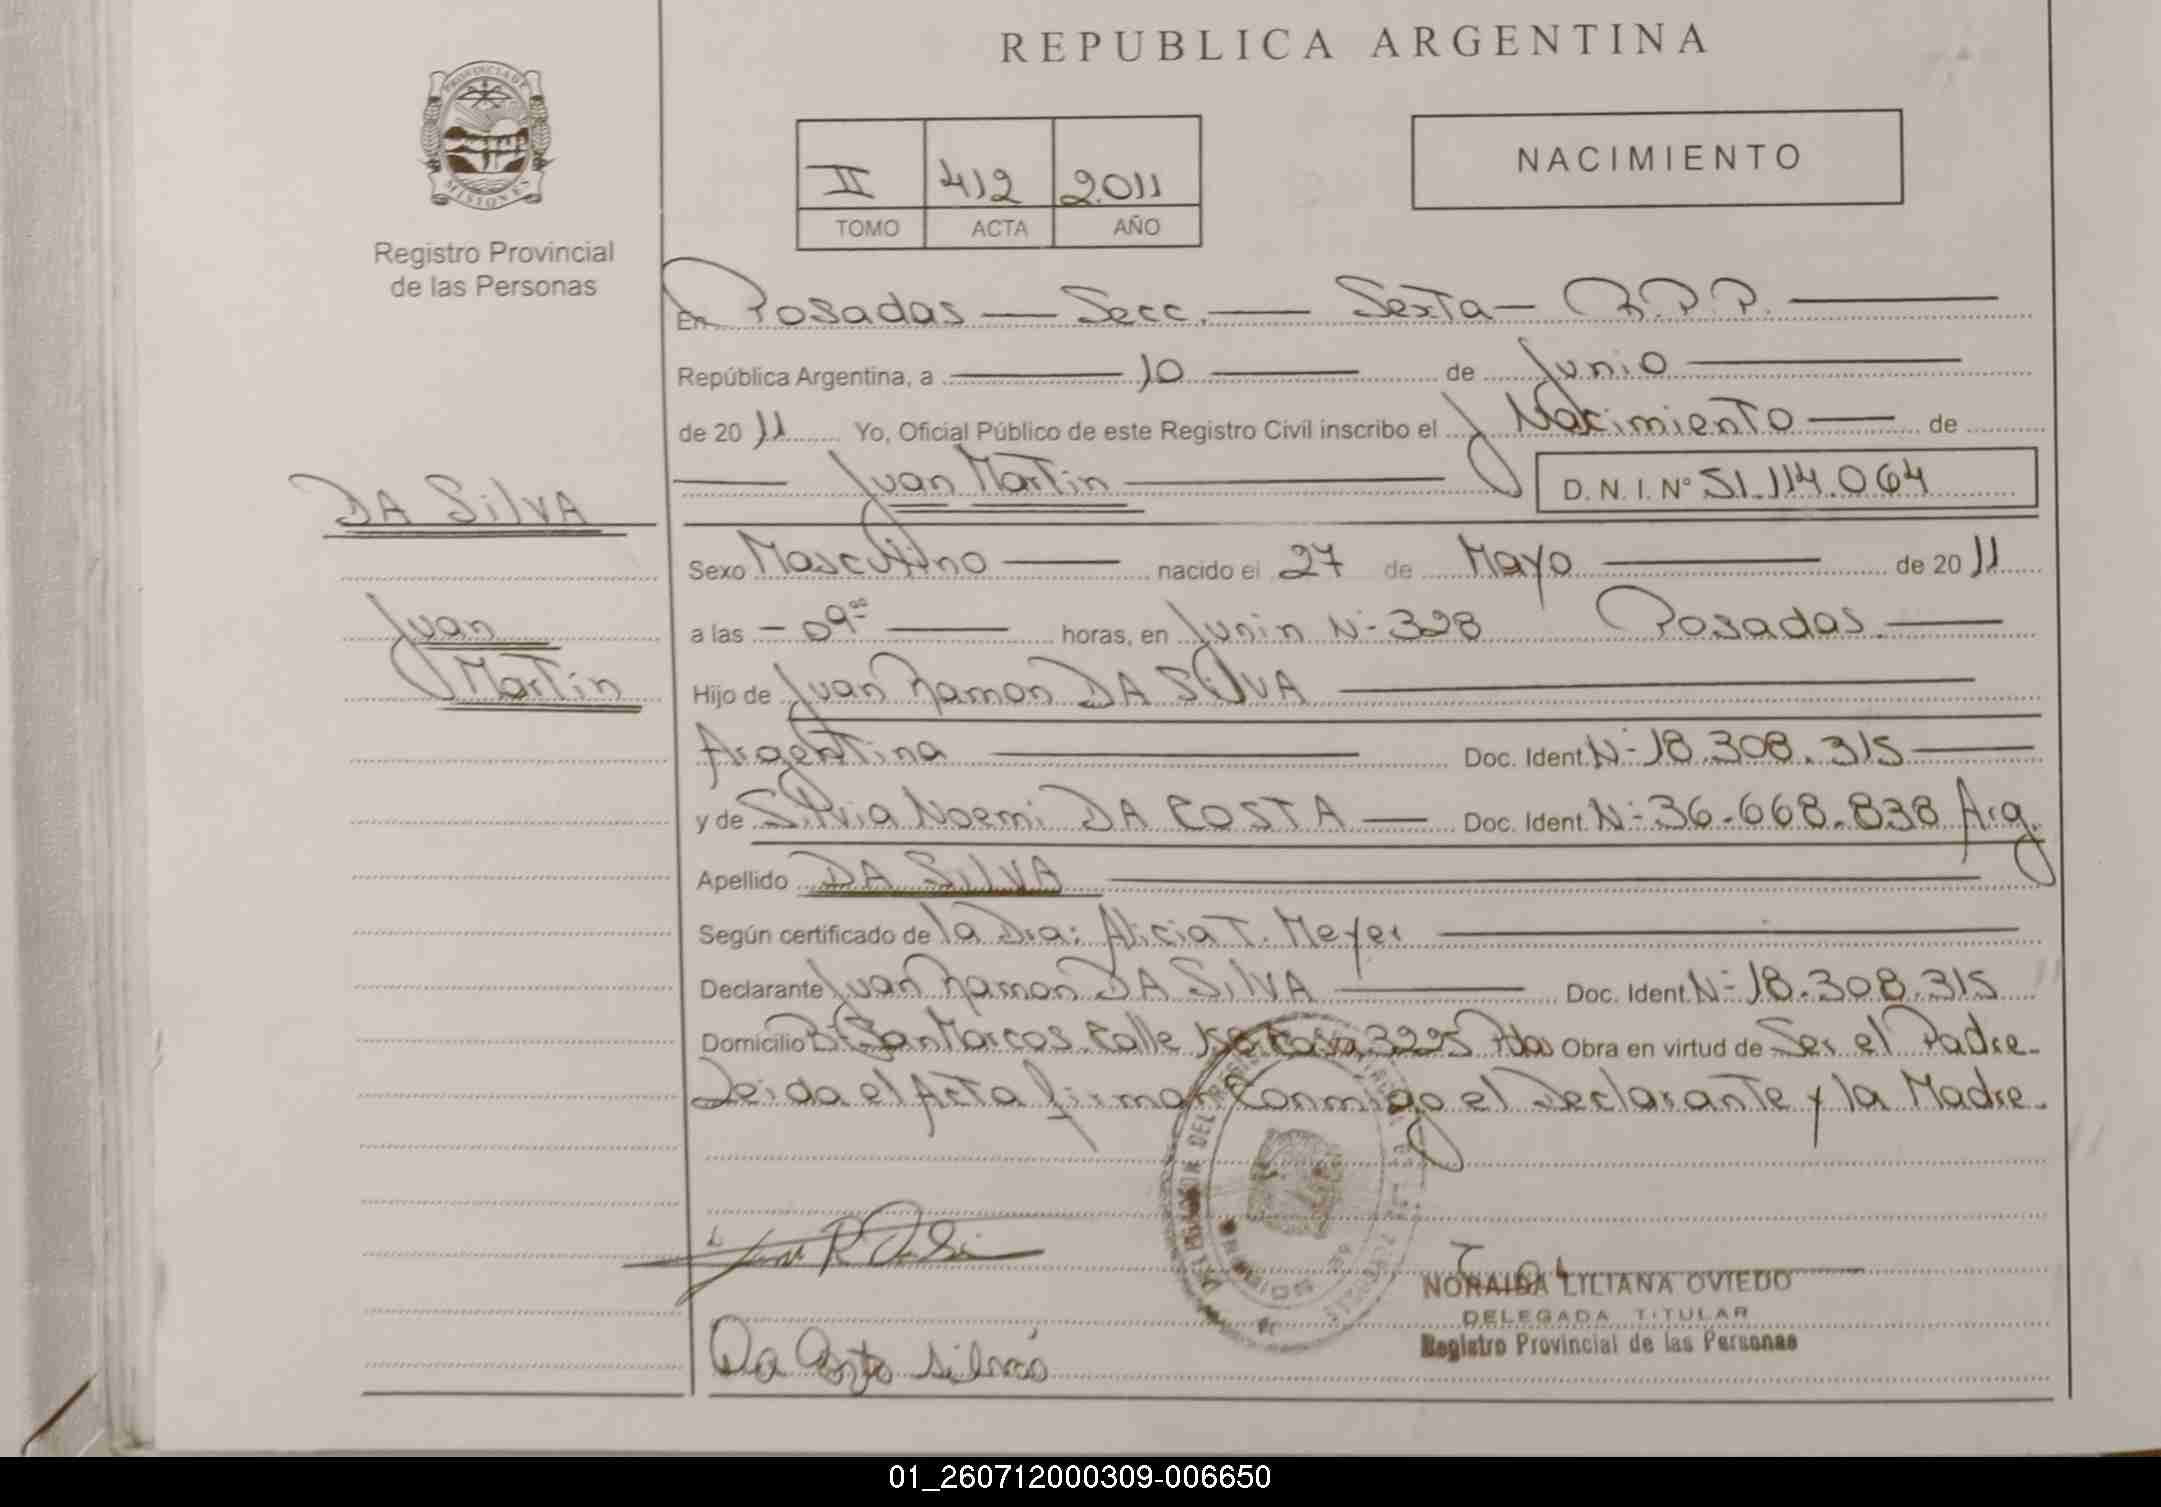 REPUBLICA ARGENTINA
PROVINCIA DE MISIONES
Registro Provincial
de las Personas
NACIMIENTO
II 412 2.011
TOMO ACTA AÑO
En Posadas — Secc. — Sexta — R.P.P. —
República Argentina, a — 10 — de Junio —
de 2011 Yo, Oficial Público de este Registro Civil inscribo el Nacimiento — de
— Juan Martin — D. N. I. Nº 51.114.064
DA SilVA
Juan
Martin
Sexo Masculino — nacido el 27 de Mayo — de 2011
a las — 09ºº — horas, en Junin Nº 328 Posadas. —
Hijo de Juan Ramon DA SilVA —
Argentina — Doc. Ident. Nº 18.308.315 —
y de Silvia Noemi DA COSTA — Doc. Ident. Nº 36.668.838 Arg.
Apellido DA SilVA —
Según certificado de la Dra: Alicia T. Meyer —
Declarante Juan Ramon DA SilVA — Doc. Ident. Nº 18.308.315
Domicilio Bº San Marcos Calle Casa 3225 Pdas Obra en virtud de Ser el Padre.
Leida el Acta firman Conmigo el Declarante y la Madre.
Juan R Da Si
Da Costa Silvia
NORAIDA LILIANA OVIEDO
DELEGADA TITULAR
Registro Provincial de las Personas
01_260712000309-006650